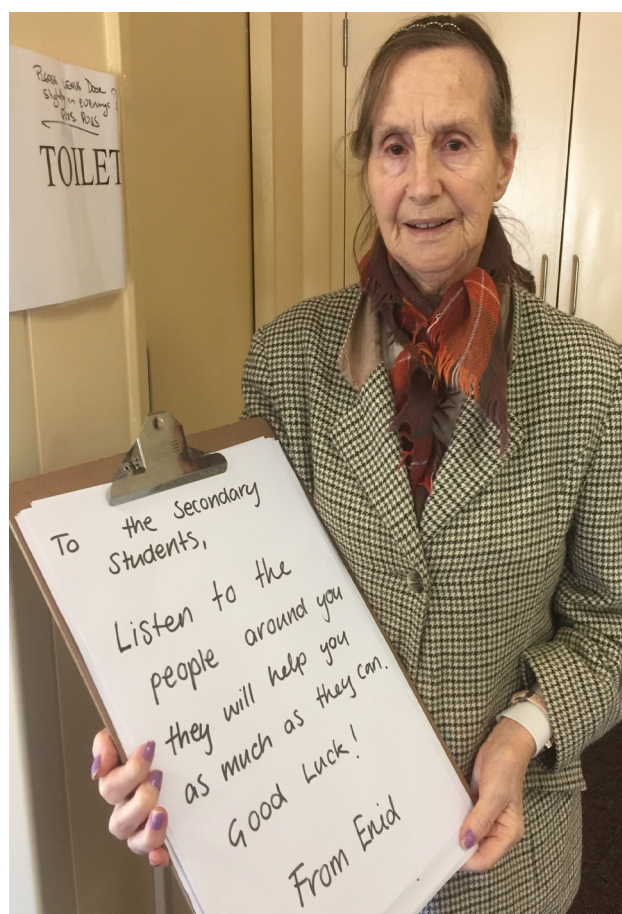 PLEASE LEAVE DOOR
slightly in evenings
TOILET
To the Secondary
Students,
Listen to the
people around you
they will help you
as much as they can.
Good Luck!
From Enid